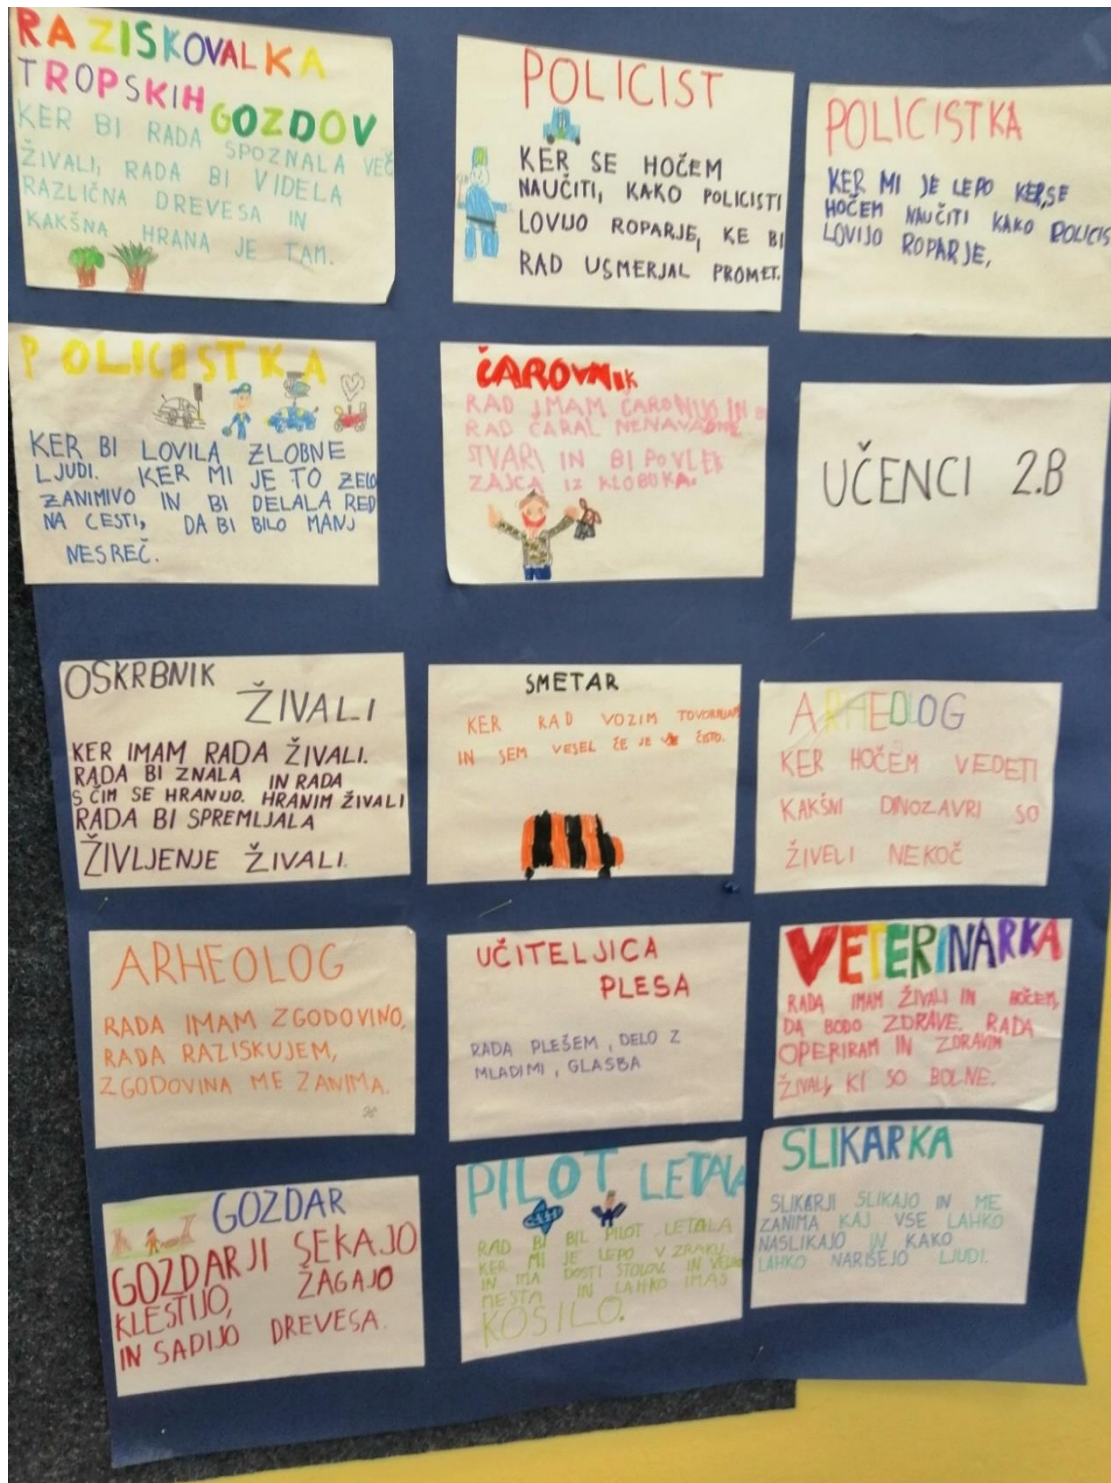 RAZISKOVALKA
TROPSKIH GOZDOV
KER BI RADA SPOZNALA VEČ
ŽIVALI, RADA BI VIDELA
RAZLIČNA DREVESA IN
KAKŠNA HRANA JE TAM.
POLICIST
KER SE HOČEM
NAUČITI, KAKO POLICISTI
LOVIJO ROPARJE, KE BI
RAD USMERJAL PROMET.
POLICISTKA
KER MI JE LEPO KER,SE
HOČEM NAUČITI KAKO POLICIS
LOVIJO ROPARJE,
POLICISTKA
KER BI LOVILA ZLOBNE
LJUDI. KER MI JE TO ZELO
ZANIMIVO IN BI DELALA RED
NA CESTI, DA BI BILO MANJ
NESREČ.
ČAROVNIK
RAD IMAM ČAROVNIJO IN
RAD ČARAL NENAVADNE
STVARI IN BI POVLEK
ZAJCA IZ KLOBUKA.
UČENCI 2.B
OSKRBNIK
ŽIVALI
KER IMAM RADA ŽIVALI.
RADA BI ZNALA IN RADA
S ČIM SE HRANIJO. HRANIM ŽIVALI
RADA BI SPREMLJALA
ŽIVLJENJE ŽIVALI.
SMETAR
KER RAD VOZIM TOVORNJAK
IN SEM VESEL ČE JE ČISTO.
ARHEOLOG
KER HOČEM VEDETI
KAKŠNI DINOZAVRI SO
ŽIVELI NEKOČ
ARHEOLOG
RADA IMAM ZGODOVINO,
RADA RAZISKUJEM,
ZGODOVINA ME ZANIMA.
UČITELJICA
PLESA
RADA PLEŠEM, DELO Z
MLADIMI, GLASBA
VETERINARKA
RADA IMAM ŽIVALI IN HOČEM,
DA BODO ZDRAVE. RADA
OPERIRAM IN ZDRAVIM
ŽIVALI, KI SO BOLNE.
GOZDAR
GOZDARJI SEKAJO
KLESTIJO, ŽAGAJO
IN SADIJO DREVESA.
PILOT LETALA
RAD BI BIL PILOT LETALA
KER MI JE LEPO V ZRAKU
IN IMA DOSTI STOLOV. IN
MESTA IN LAHKO IMAŠ
KOSILO.
SLIKARKA
SLIKARJI SLIKAJO IN ME
ZANIMA KAJ VSE LAHKO
NASLIKAJO IN KAKO
LAHKO NARIŠEJO LJUDI.